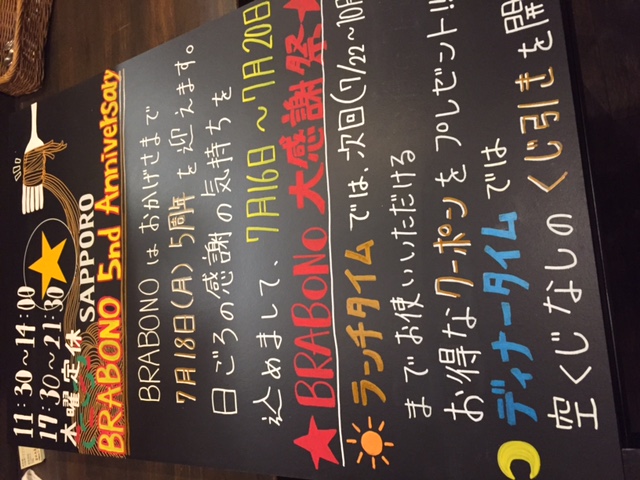 11:30～14:00
17:30～21:30
木曜定休
SAPPORO
BRABONO 5nd Anniversary
BRABONO は おかげさまで
7月18日(月) 5周年 を 迎えます。
日ごろの感謝の気持ちを
込めまして、7月16日～7月20日
★BRABONO 大感謝祭★
ランチタイム では、次回(7/22～10月
までお使いいただける
お得なクーポンをプレゼント!!
ディナータイム では
空くじなしの くじ引き を開